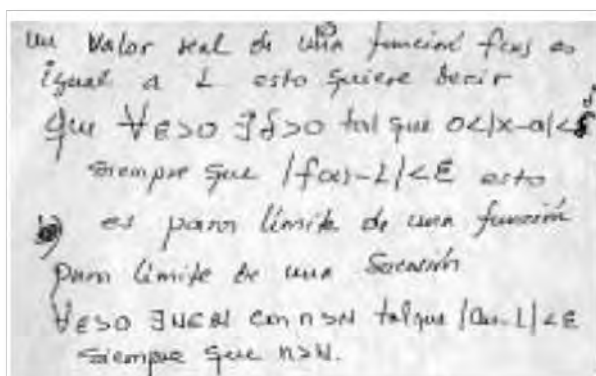 un valor real de una función f(x) es
igual a L esto quiere decir
que ∀ε>0 ∃δ>0 tal que 0<|x-a|<δ
siempre que |f(x)-L|<ε esto
es para límite de una función
para límite de una sucesión
∀ε>0 ∃N∈ℕ con n>N tal que |an-L|<ε
siempre que n>N.